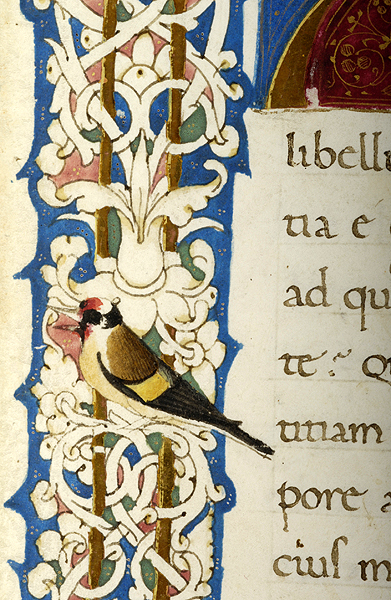 libellu
tia e
ad qu
te? Q
titiam
pore a
cius m